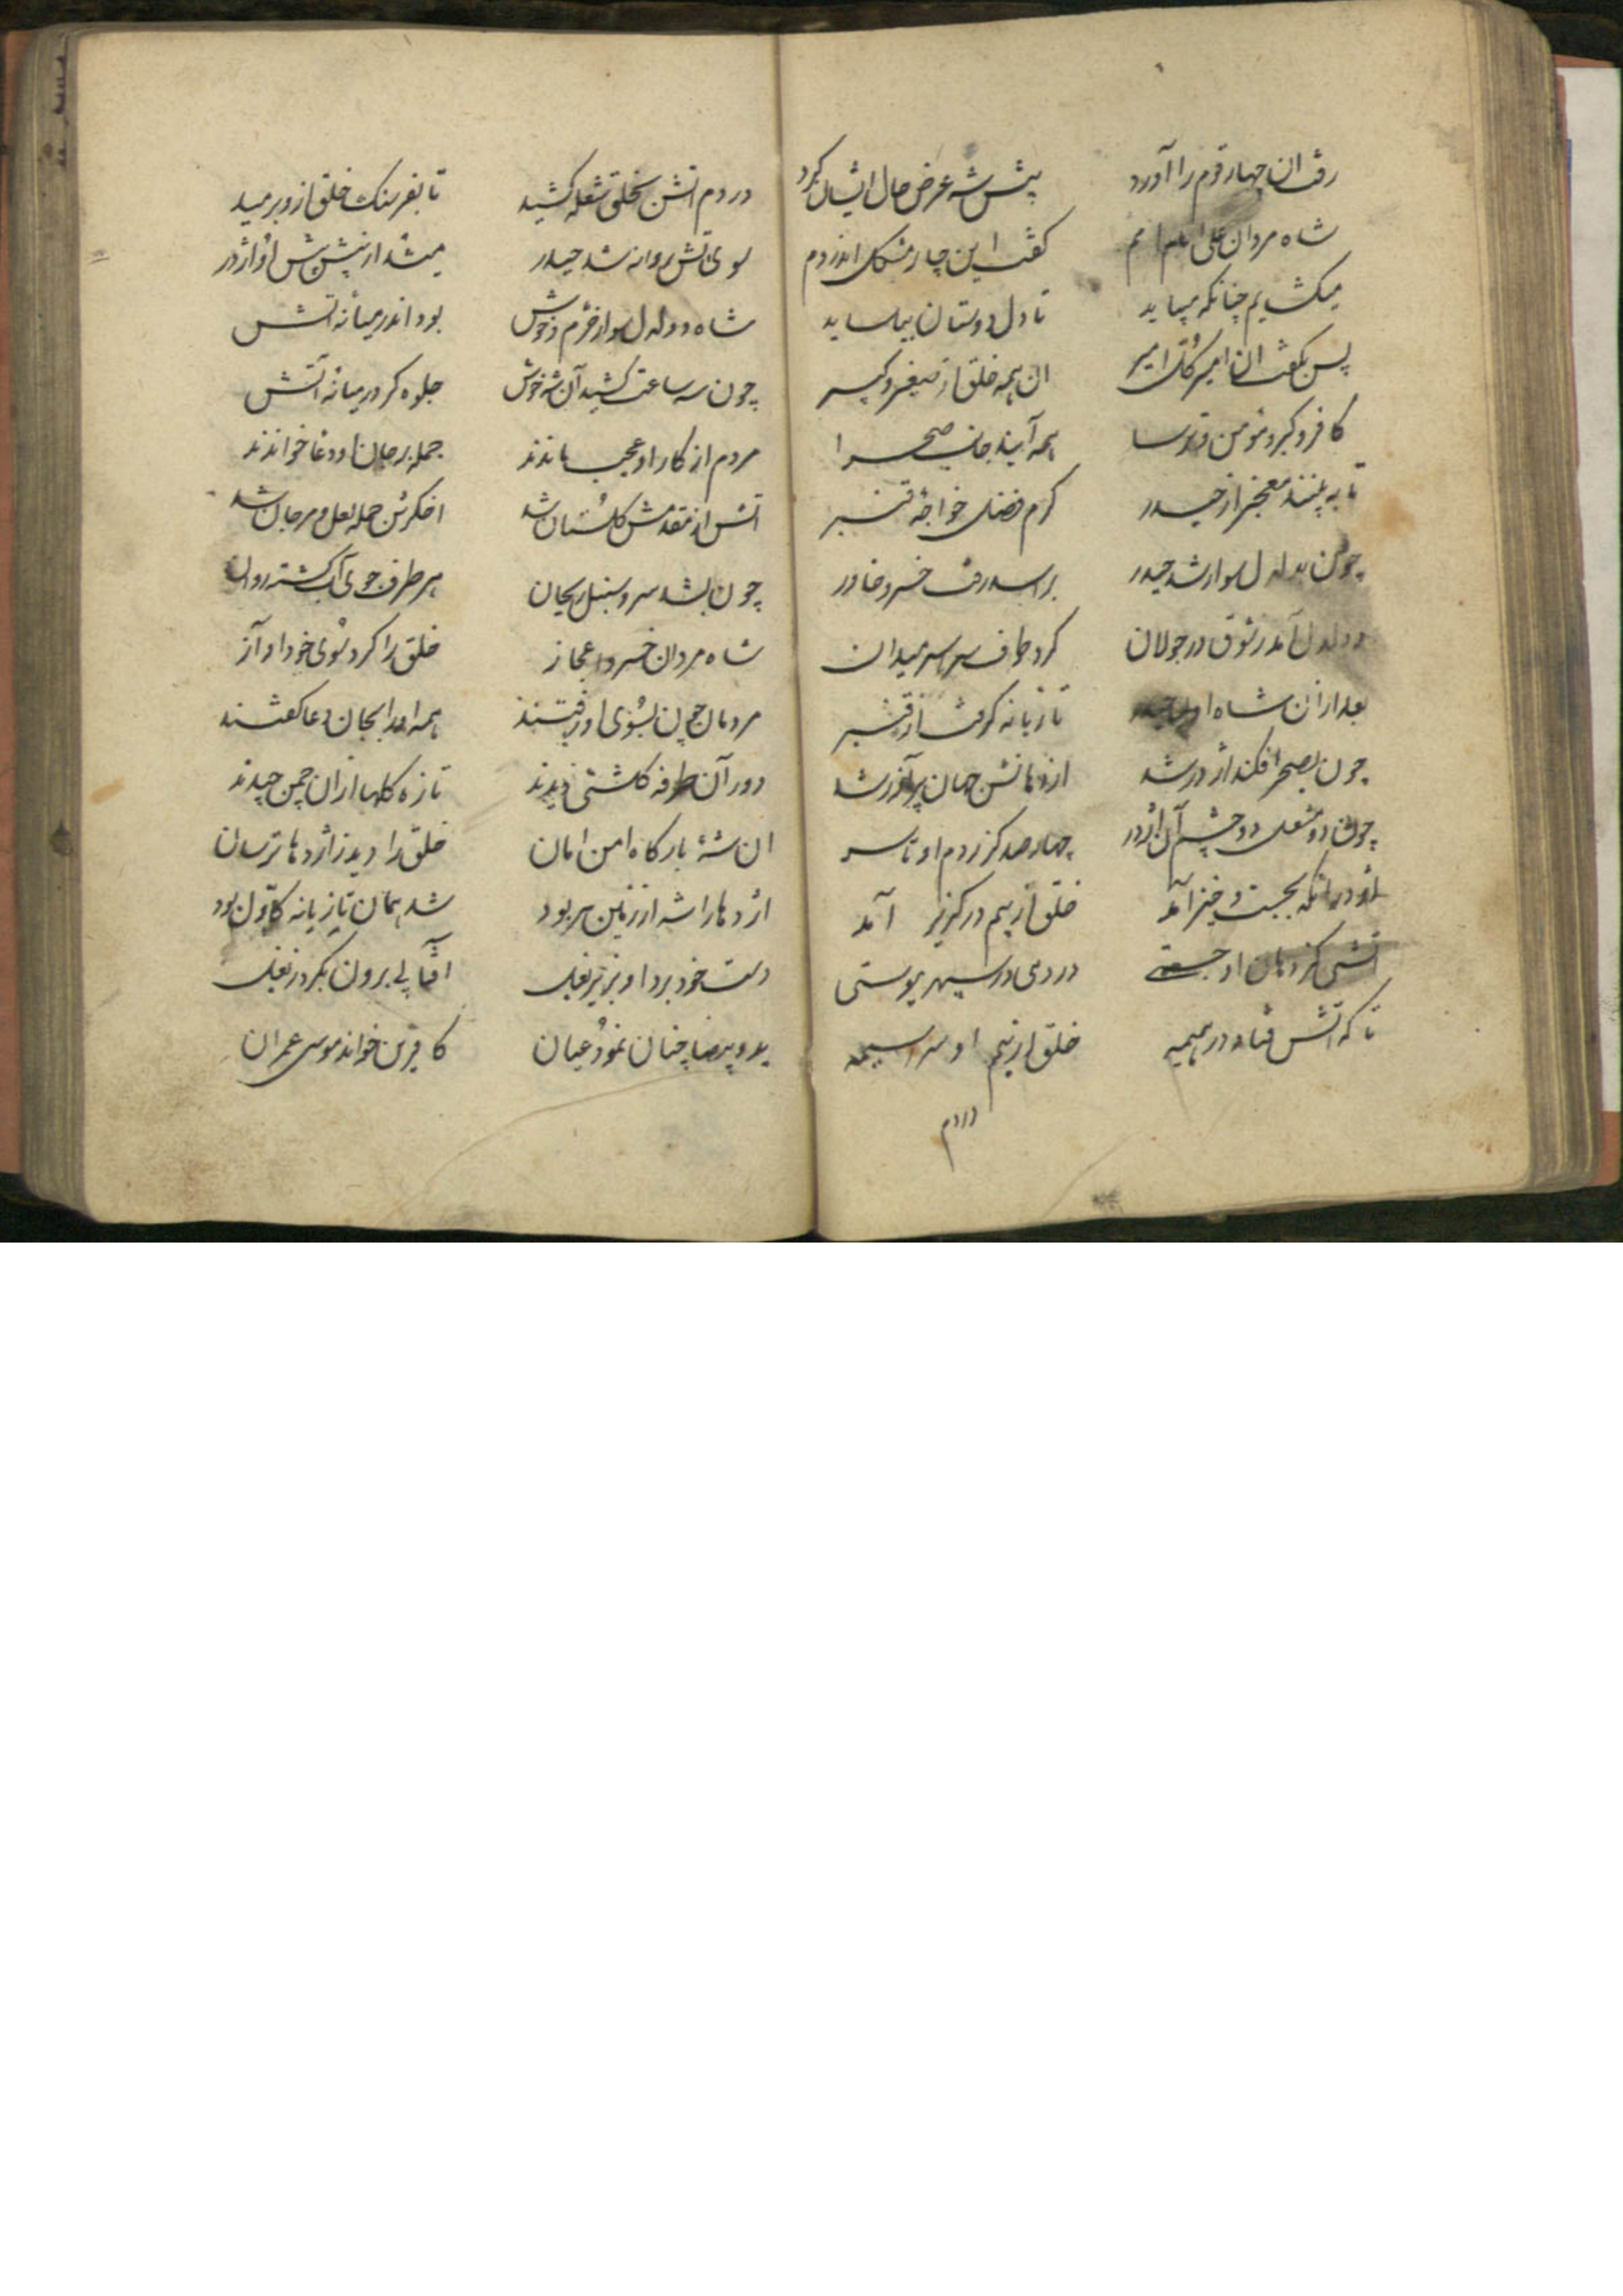 رفت ان چهار قوم را آورد پیش شه عرض حال ایشان کرد
شاه مردان علی امام امم گفت این چار مشکل اندر دم
میکشایم چنانکه میباید تا دل دوستان بیاساید
پس بگفت ان امیر کل امیر ان همه خلق از صغیر و کبیر
کافر و کبر و مومن و ترسا همه آیند جانب صحرا
تا به بینند معجز از حیدر کرم فضل خواجه قنبر
چون به دلدل سوار شد حیدر براسد رفت خسرو خاور
دلدل آمد ز شوق در جولان کرد طواف سراسر میدان
بعد ازان شاه تازیانه کرفت از قنبر
چون بصحرا فکند اژدر شد از دهانش جهان پر آذر شد
چون دو مشعل دو چشم آن اژدر چهارصد کز ز دم او تا سر
اژدر آنکه بجست و خیز آمد خلق از بیم در کریز آمد
اتشی کز دهان او جستی در دمی در سپهر پیوستی
تا که اتش فتاد در همیمه خلق از بیم او سراسیمه
در دم
در دم اتش بخلق شعله کشید تا بفرسنک خلق ازو برمید
سوی اتش روانه شد حیدر میشد از پیش پیش او اژدر
شاه دلدل سوار خرم و خوش بود اندر میانه اتش
چون سه ساعت کشید آن شه خوش جلوه کر در میانه آتش
مردم از کار او عجب ماندند جمله بر جان او دعا خواندند
اتش از مقدمش کلستان شد اخکرش جمله لعل و مرجان شد
چون بشد سرو سنبل ریحان هر طرف جوی آب کشته روان
شاه مردان خسرو اعجاز خلق را کرد سوی خود آواز
مردمان چون بسوی او رفتند همه او را بجان دعا گفتند
دور آن طرفه کلشتی دیدند تازه کلها ازان چمن چیدند
ان شه بارکاه امن امان خلق را دید ز اژدها ترسان
اژدها را شه از زمین بربود شد همان تازیانه کاول بود
دست خود برد او بزیر بغل آفتابی برون بکرد ز بغل
ید و بیضا چنان نمود عیان کافرین خواند موسی عمران